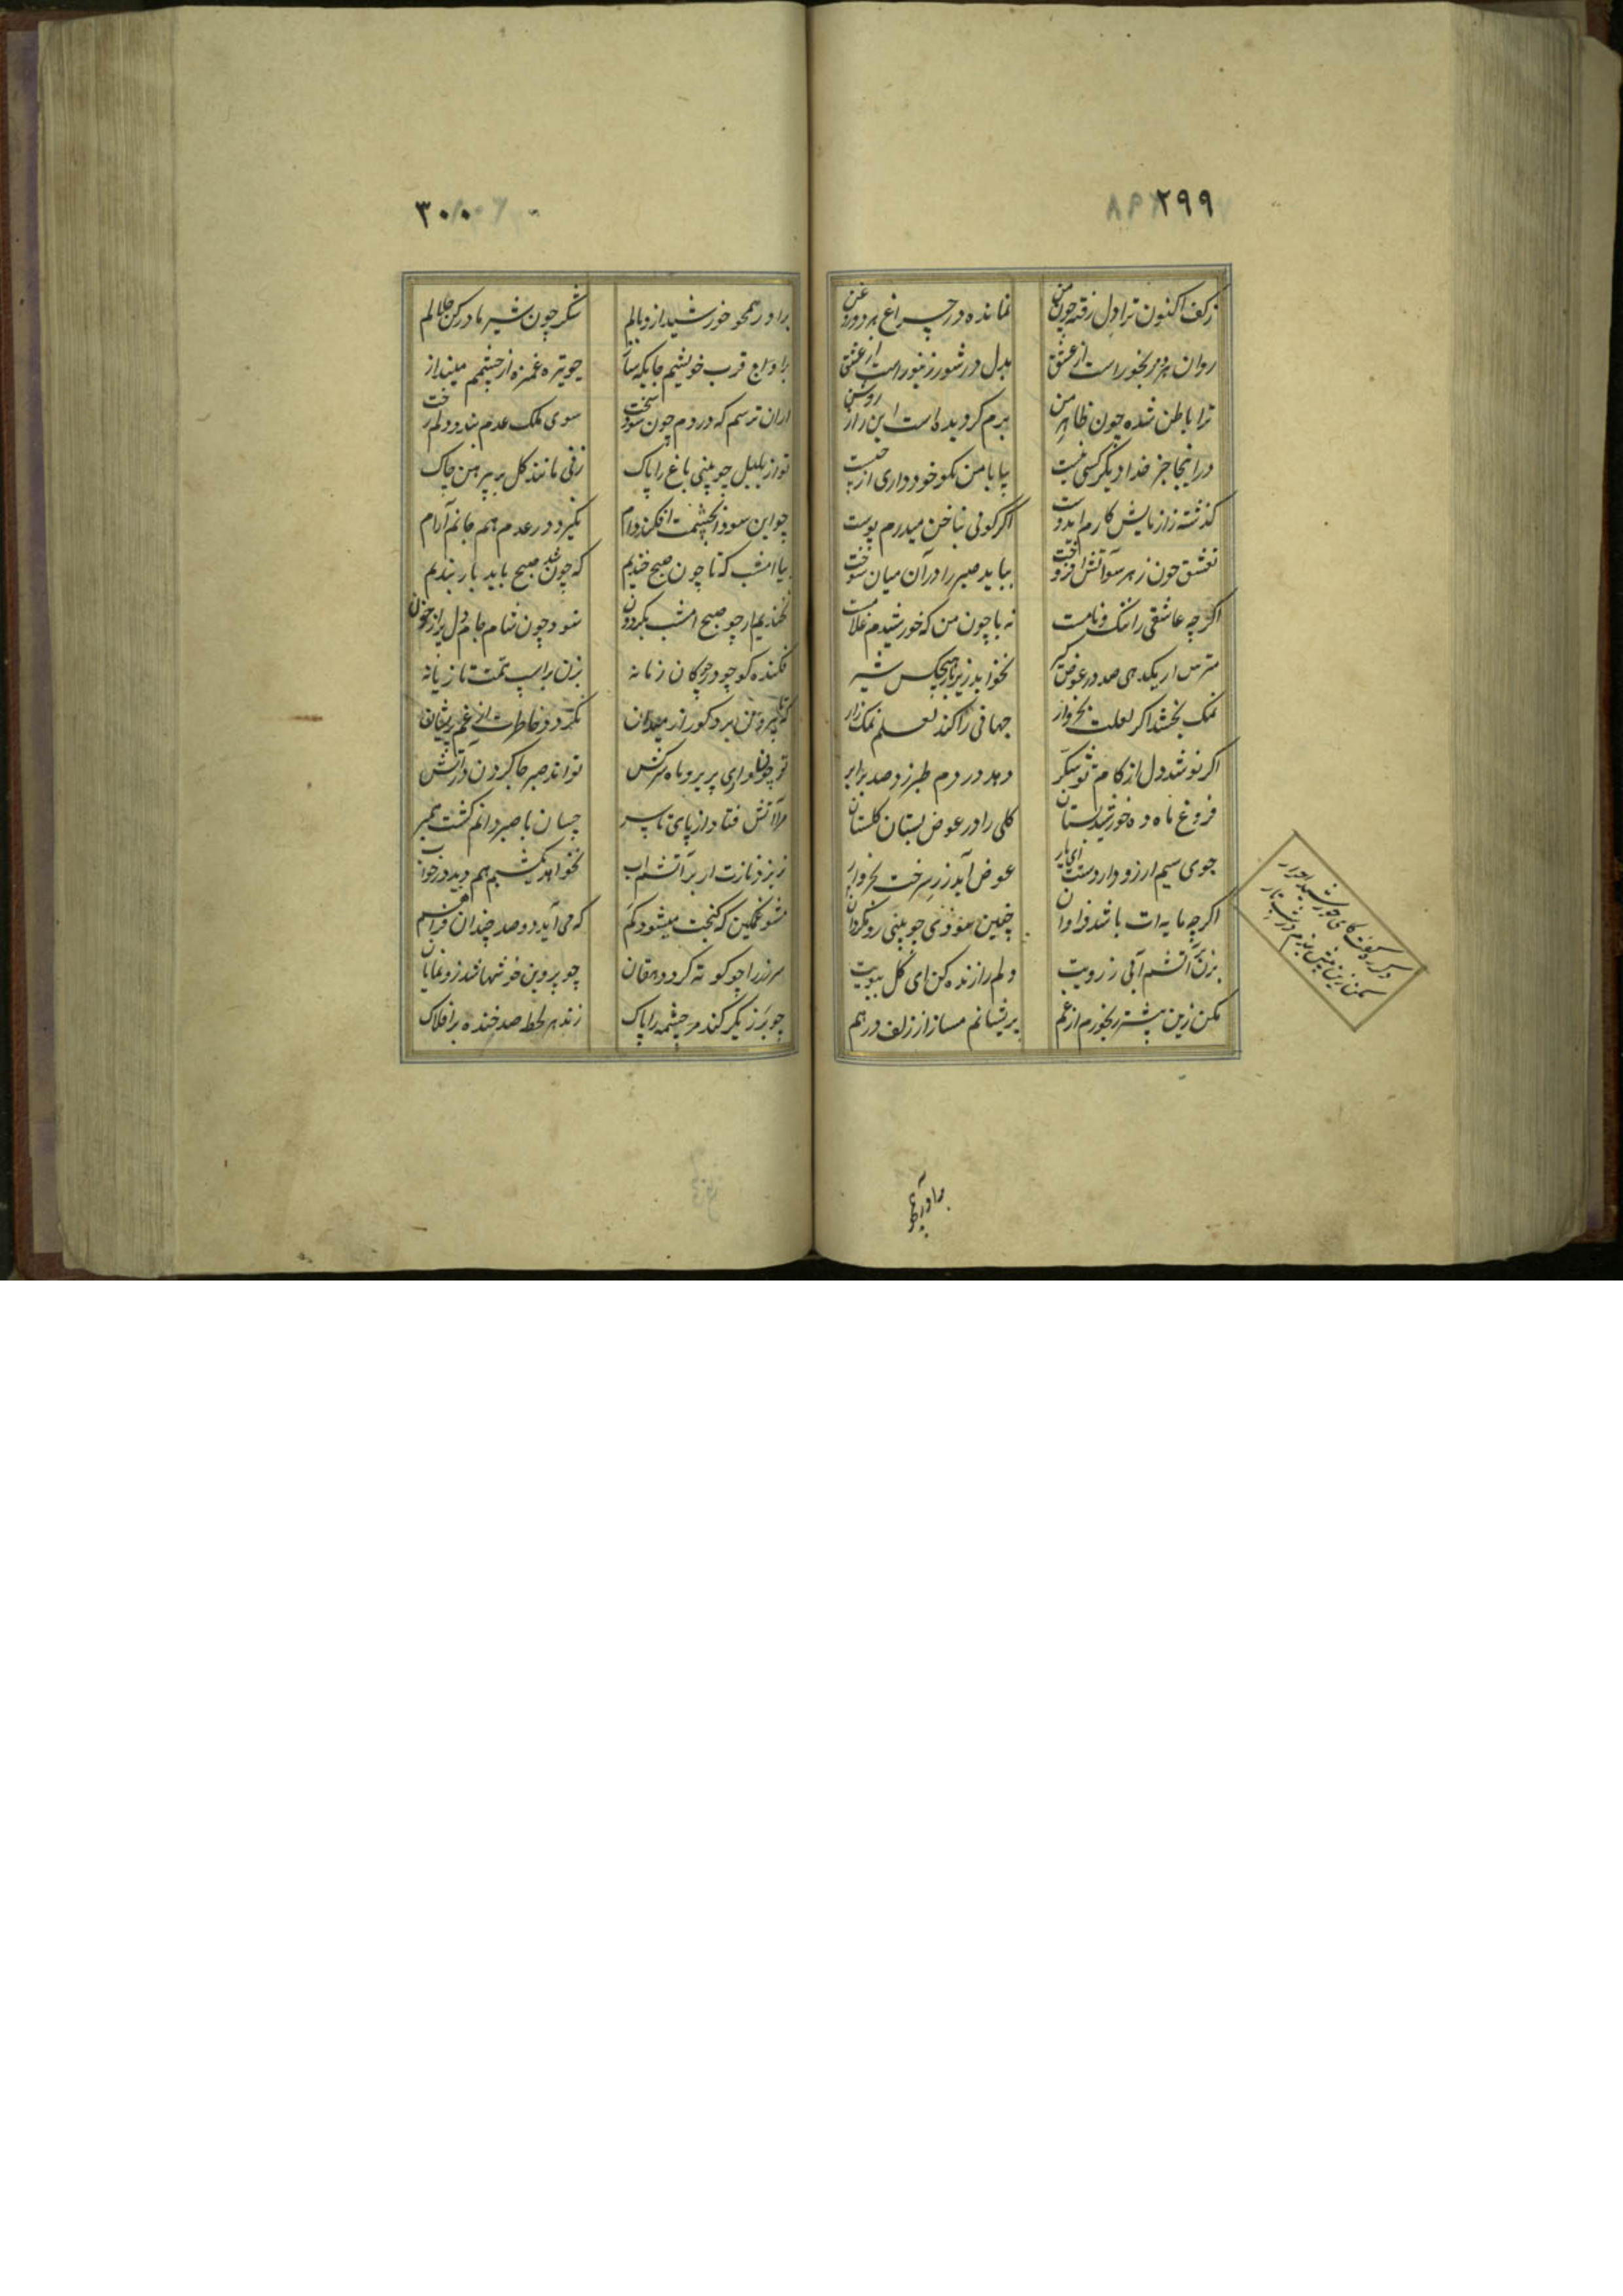 ۲۹۹
ز کف اکنون ترا دل رفته چون من نمانده در چراغ هر دو روغن
روان هر دو رنجور است از عشق بدل در شور زنبور است از عشق
ترا باطن شده چون ظاهر من برم کردیده است این راز روشن
در اینجا جز خدا دیگر کسی نیست بیا با من بکو خودداری از چیست
کذشته زازمایش کارم ایدوست اگر کوئی بناخن میدرم پوست
تعشق چون ز هر سو آتش افروخت بباید صبر را در آن میان سوخت
اکرچه عاشقی را ننک و نامست نه با چون من که خورشیدم غلامست
مترس ار یکدهی صد در عوض کیر نخوابد زیر بار هیچکس شیر
نمک بخشد اکر لعلت بخروار جهانی را کند لعلم نمک زار
اکر نوشد دل از کام تو شکر دهد در دم طبرزد صد برابر
فروغ ماه ده خورشید بستان کلی را در عوض بستان کلستان
جوی سیم ار زو دار دوست ای یار عوض آید زر سرخت بخروار
اکرچه مایه ات باشد فراوان چنین سودی چو بینی رو مکردان
بزن بر آتشم آبی ز رویت دلم را زنده کن ای کل ببویت
مکن زین بیشتر رنجورم از غم پریشانم مساز از زلف درهم
دکر ره گفت کای خورشید انور
سمنبار
برآور همچو
۳۰۰
برآور همچو خورشید از وبالم شکر چون شیر مادر کن حلالم
براوج قرب خویشم جایکه ساز چو تیر غمزه از چشمم مینداز
از آن ترسم که در دم چون شود سخت سوی ملک عدم بندد دلم رخت
تو از بلبل چو بینی باغ را پاک زنی مانند کل بر پیرهن چاک
چو این سودا بچشمت افکند دام نکیرد در عدم هم جانم آرام
بیا امشب که تا چون صبح خندیم که چون شد صبح باید بار بندیم
نخندیم ار چو صبح امشب بکردون شود چون شام جام دل پر از خون
فکنده کو چو در چوکان زمانه بزن بر اسپ همت تازیانه
که تا بیرون برد کو از میدان نکردد خاطرت از غم پریشان
تو چون او ای پریرو ماه سرکش تواند صبر جا کردن در آتش
مرا آتش فتاد از پای تا سر چسان با صبر دانم کشت همبر
نریزد نازت ار بر آتشم آب نخواهد چشمم هم دید در خواب
مشو غمکین که کنجت میشود کم که می آید دو صد چندان فراهم
سر زر را چو کوته کرد دهقان چو پروین خوشها شد زو نمایان
چو برزیکر کند سرچشمه را پاک زند هر لحظه صد خنده بر افلاک